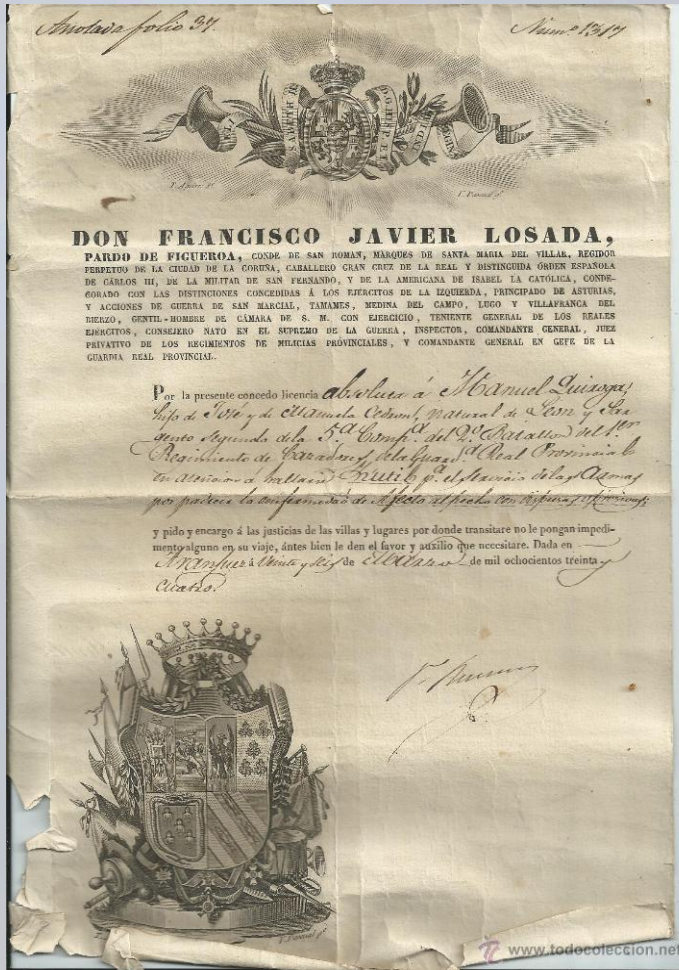 Anotada folio 37.
Num.º 1317
DON FRANCISCO JAVIER LOSADA,
PARDO DE FIGUEROA, CONDE DE SAN ROMAN, MARQUES DE SANTA MARIA DEL VILLAR, REGIDOR
PERPETUO DE LA CIUDAD DE LA CORUÑA, CABALLERO GRAN CRUZ DE LA REAL Y DISTINGUIDA ÓRDEN ESPAÑOLA
DE CÁRLOS III, DE LA MILITAR DE SAN FERNANDO, Y DE LA AMERICANA DE ISABEL LA CATÓLICA, CONDE-
CORADO CON LAS DISTINCIONES CONCEDIDAS Á LOS EJÉRCITOS DE LA IZQUIERDA, PRINCIPADO DE ASTURIAS,
Y ACCIONES DE GUERRA DE SAN MARCIAL, TAMAMES, MEDINA DEL CAMPO, LUGO Y VILLAFRANCA DEL
BIERZO, GENTIL-HOMBRE DE CÁMARA DE S. M. CON EJERCICIO, TENIENTE GENERAL DE LOS REALES
EJÉRCITOS, CONSEJERO NATO EN EL SUPREMO DE LA GUERRA, INSPECTOR, COMANDANTE GENERAL, JUEZ
PRIVATIVO DE LOS REGIMIENTOS DE MILICIAS PROVINCIALES, Y COMANDANTE GENERAL EN GEFE DE LA
GUARDIA REAL PROVINCIAL.
Por la presente concedo licencia absoluta á Manuel Quiroga,
hijo de José y de Manuela natural de Leon y Sar
gento segundo de la 5ª Comp.ª del 2º Batallon del 1er
Regimiento de Cazadores de la Guard.ª Real Provincial
en atencion á hallarse Inutil p.ª el servicio de las Armas
por padecer la enfermedad de Afecto al pecho con
y pido y encargo á las justicias de las villas y lugares por donde transitare no le pongan impedi-
mento alguno en su viaje, ántes bien le den el favor y auxilio que necesitare. Dada en
Aranjuez á Veinte y seis de Marzo de mil ochocientos treinta y
cuatro.
www.todocoleccion.net